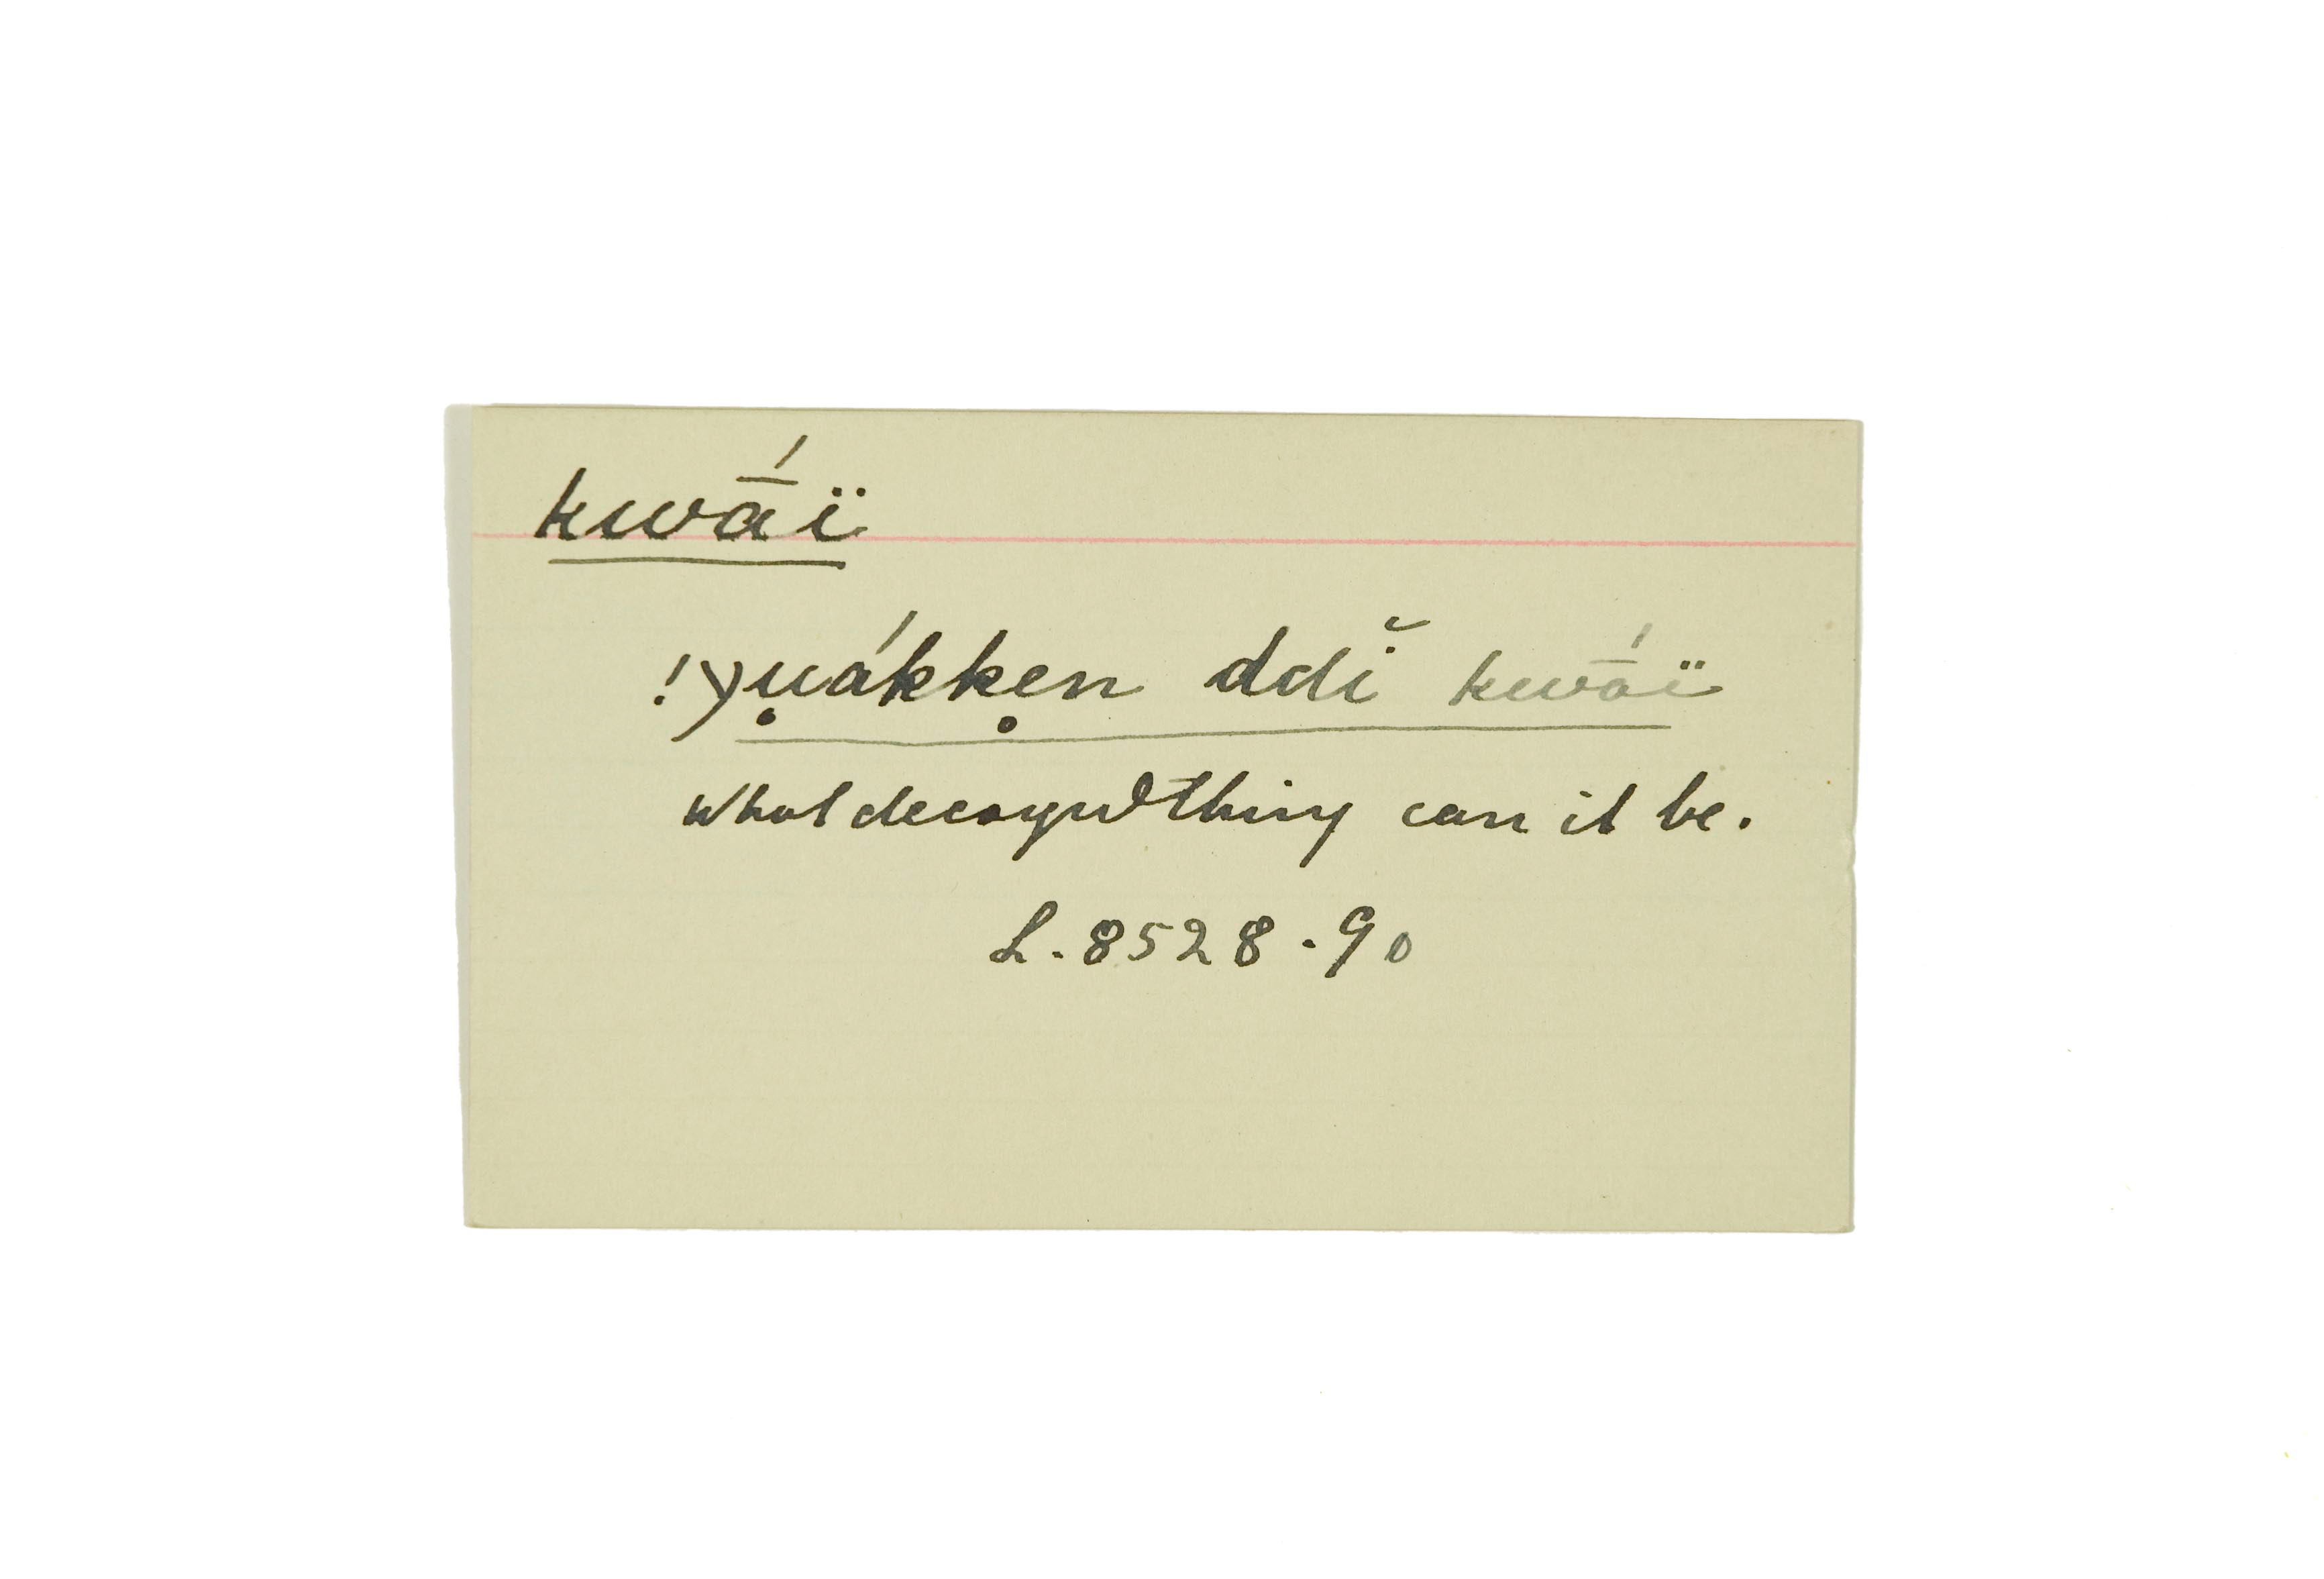 kwā́ï
!χụákkẹn ddĭ kwā́ï
what decayed thing can it be.
L. 8528 . 90